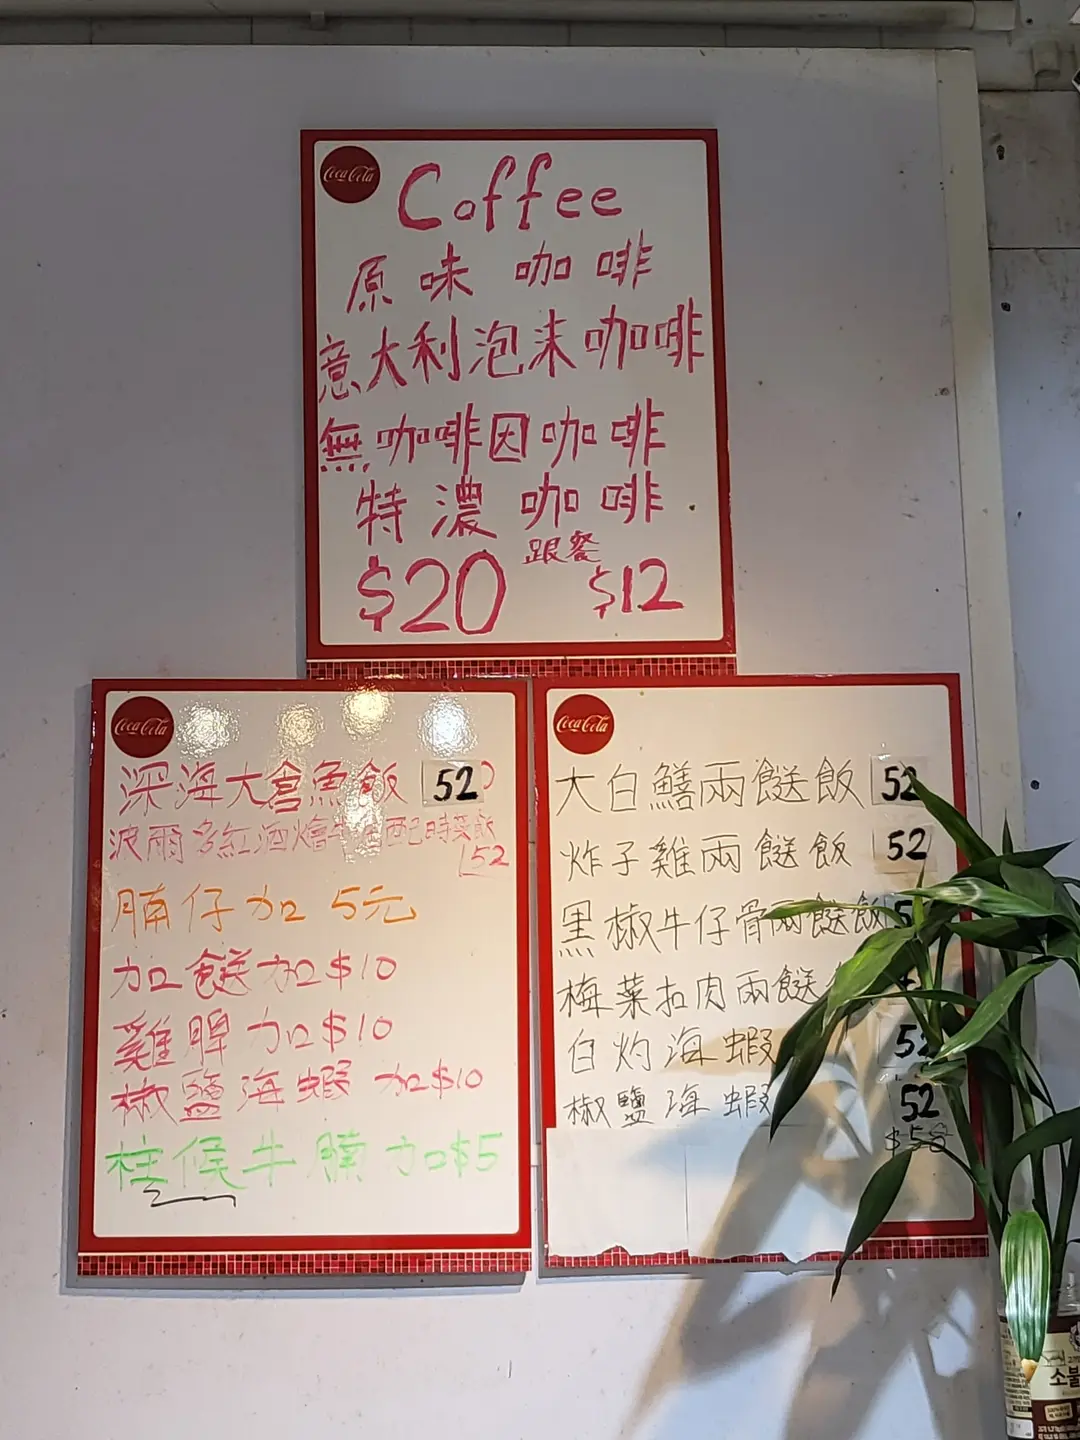 Coca-Cola
Coffee
原味咖啡
意大利泡沫咖啡
無咖啡因咖啡
特濃咖啡
跟餐
$20 $12
Coca-Cola
深海大倉魚飯 52
波爾多紅酒燴牛 配時菜飯
52
腩仔加5元
加餸加$10
雞髀加$10
椒鹽海蝦加$10
柱候牛腩加$5
Coca-Cola
大白鱔兩餸飯 52
炸子雞兩餸飯 52
黑椒牛仔骨兩餸飯
梅菜扣肉兩餸
白灼海蝦 52
椒鹽海蝦 52
$58
소불